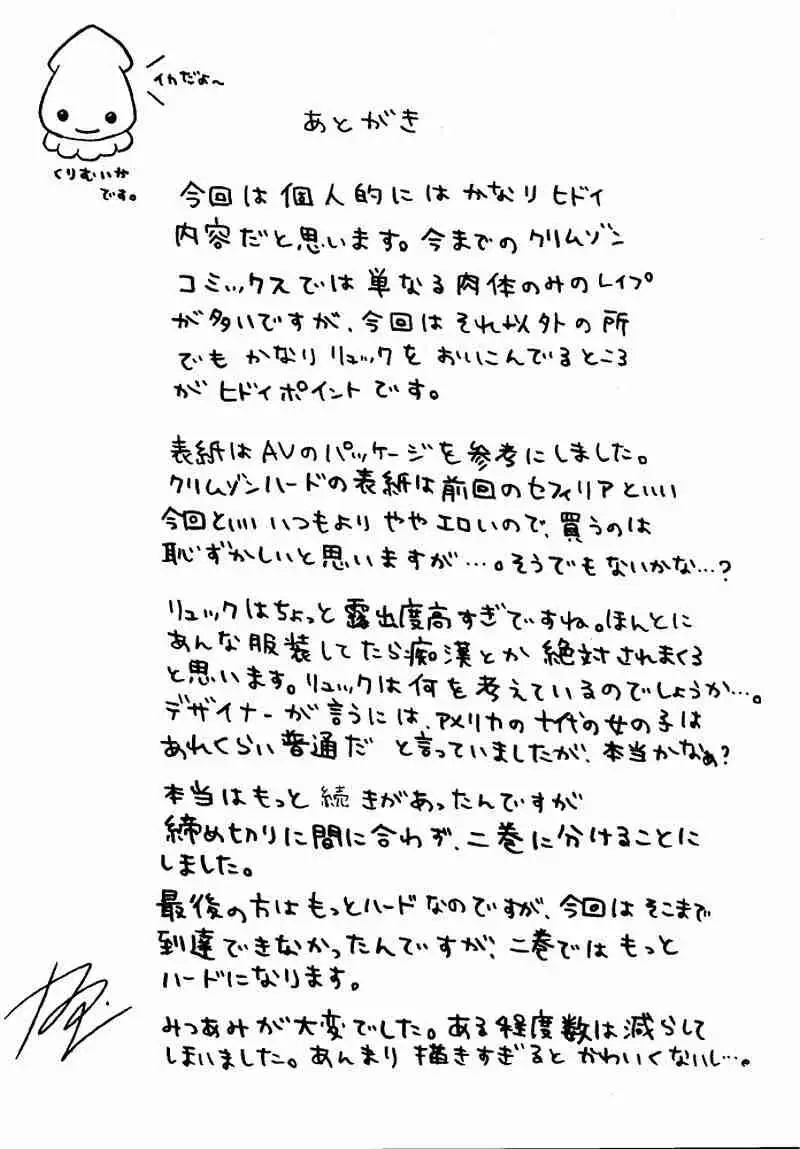 イカだよ~
くりむいか
です。
あとがき
今回は個人的にはかなりヒドイ
内容だと思います。今までのクリムゾン
コミックスでは単なる肉体のみのレイプ
が多いですが、今回はそれ以外の所
でもかなりリュックをおいこんでるところ
がヒドイポイントです。
表紙はAVのパッケージを参考にしました。
クリムゾンハードの表紙は前回のセフィリアといい
今回といいいつもよりややエロいので、買うのは
恥ずかしいと思いますが…。そうでもないかな…?
リュックはちょっと露出度高すぎですね。ほんとに
あんな服装してたら痴漢とか絶対されまくる
と思います。リュックは何を考えているのでしょうか…。
デザイナーが言うには、アメリカの十代の女の子は
あれくらい普通だと言っていましたが、本当かなぁ?
本当はもっと続きがあったんですが
締め切りに間に合わず、二巻に分けることに
しました。
最後の方はもっとハードなのですが、今回はそこまで
到達できなかったんですが、二巻ではもっと
ハードになります。
みつあみが大変でした。ある程度数は減らして
しまいました。あんまり描きすぎるとかわいくないし…。